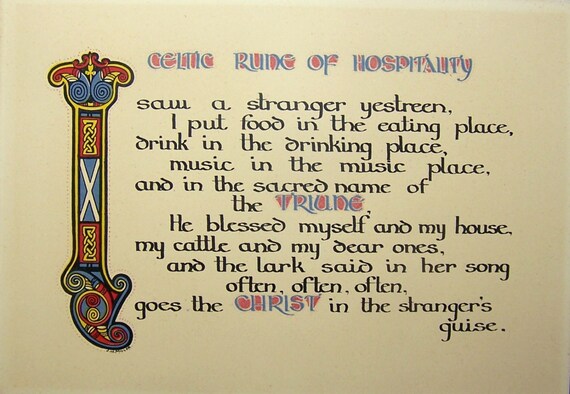 CELTIC RUNE OF HOSPITALITY
I saw a stranger yestreen,
I put food in the eating place,
drink in the drinking place,
music in the music place,
and in the sacred name of
the TRIUNE,
He blessed myself and my house,
my cattle and my dear ones,
and the lark said in her song
often, often, often,
goes the CHRIST in the stranger's
guise.